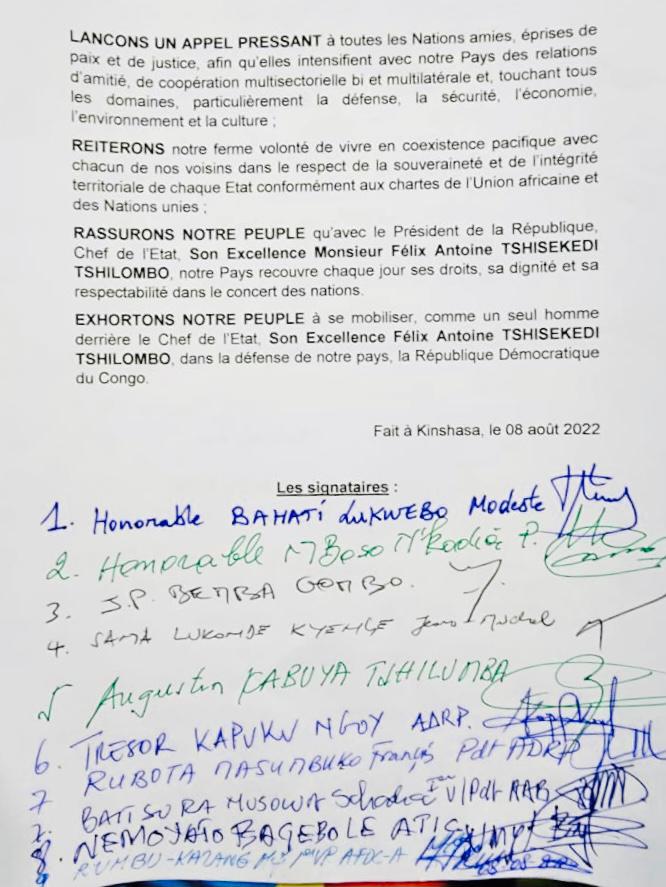 LANCONS UN APPEL PRESSANT à toutes les Nations amies, éprises de
paix et de justice, afin qu'elles intensifient avec notre Pays des relations
d'amitié, de coopération multisectorielle bi et multilatérale et, touchant tous
les domaines, particulièrement la défense, la sécurité, l'économie,
l'environnement et la culture ;
REITERONS notre ferme volonté de vivre en coexistence pacifique avec
chacun de nos voisins dans le respect de la souveraineté et de l'intégrité
territoriale de chaque Etat conformément aux chartes de l'Union africaine et
des Nations unies ;
RASSURONS NOTRE PEUPLE qu'avec le Président de la République,
Chef de l'Etat, Son Excellence Monsieur Félix Antoine TSHISEKEDI
TSHILOMBO, notre Pays recouvre chaque jour ses droits, sa dignité et sa
respectabilité dans le concert des nations.
EXHORTONS NOTRE PEUPLE à se mobiliser, comme un seul homme
derrière le Chef de l'Etat, Son Excellence Félix Antoine TSHISEKEDI
TSHILOMBO, dans la défense de notre pays, la République Démocratique
du Congo.
Fait à Kinshasa, le 08 août 2022
Les signataires :
1. Honorable BAHATI LUKWEBO Modeste
2. Honorable MBOSO N'kodia P.
3. J.P. BEMBA GOMBO.
4. SAMA LUKONDE KYENGE Jean-Michel
5 Augustin KABUYA TSHILUMBA
6. TRESOR KAPUKU NGOY ADRP.
7 RUBOTA MASUMBUKO François Pdt ADRP
BATISURA MUSOWA V/Pdt AAB
8. NEMOYATO BAGEBOLE
RUMBU-KAZANG AFDC-A